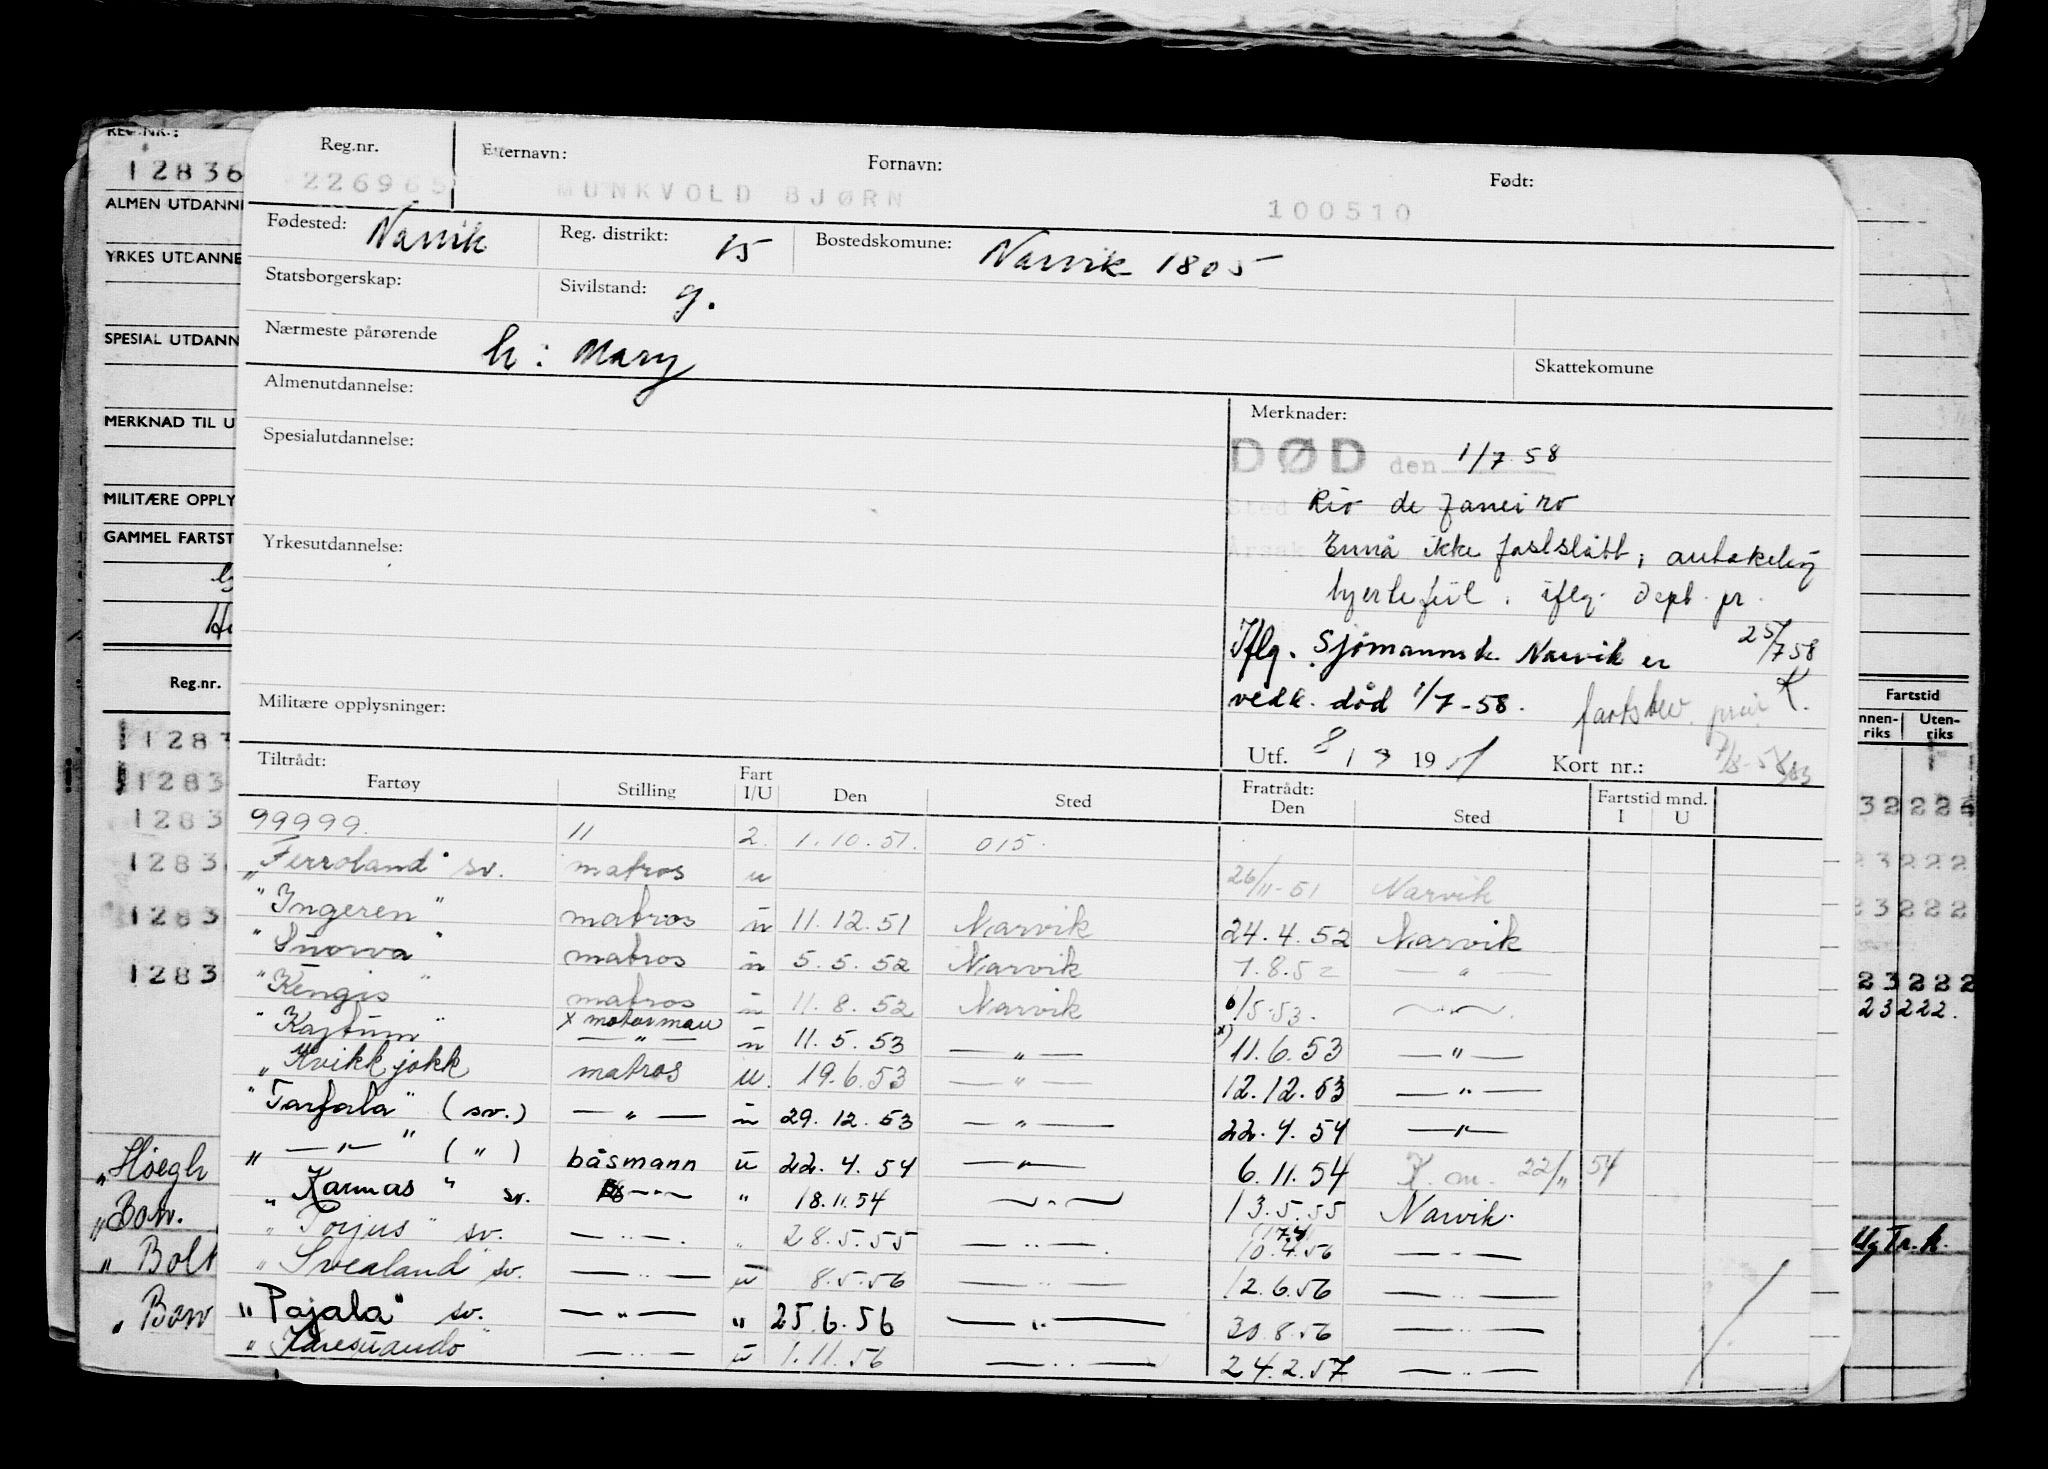 Reg.nr. Etternavn: Fornavn: Født:
226965 MUNKVOLD BJØRN 100510
Fødested: Narvik Reg. distrikt: 15 Bostedskomune: Narvik 1805
Statsborgerskap: Sivilstand: g.
Nærmeste pårørende h: Mary Skattekomune
Almenutdannelse:
Spesialutdannelse:
Yrkesutdannelse:
Militære opplysninger:
Merknader:
DØD den 1/7 58
Sted Rio de Janeiro
Årsak Ennå ikke fastslått, antakelig
hjertefeil. iflg. Dept. pr.
25/7 58
Iflg. Sjømannsk. Narvik er
vedk. død 1/7-58. K.
fartsbev.
Utf. 8 / 3 19 51 Kort nr.:
Tiltrådt: Fratrådt:
Fartøy Stilling Fart I/U Den Sted Den Sted Fartstid mnd. I U
99999. 11 2. 1.10.51. 015.
"Ferroland" sv. matros u 26/11-51 Narvik
"Ingeren" matros u 11.12.51 Narvik 24.4.52 Narvik
"Snorva" matros u 5.5.52 Narvik 7.8.52 — " —
"Kengis" matros u 11.8.52 Narvik 6/5.53. — " —
x motormann
"Kajtum" — " — u 11.5.53 — " — x) 11.6.53 — " —
"Kvikkjokk matros u. 19.6.53 — " — 12.12.53 — " —
"Tarfala" (sv.) — " — u 29.12.53 — " — 22.4.54 — " —
" — " — " ( " ) båsmann u 22.4.54 — " — 6.11.54 K.m. 22/11 54
"Karmas" sv. — " — " 18.11.54 — " — 13.5.55 Narvik.
"Porjus" sv. — " — " 28.5.55 — " — (17.4) 10.4.56 — " —
"Svealand" sv. — " — u 8.5.56 — " — 12.6.56 — " —
"Pajala" sv. — " — " 25.6.56 — " — 30.8.56 — " —
"Karesuando" — " — u 1.11.56 — " — 24.2.57 — " —
REG.NR.:
12836
ALMEN UTDANNE
YRKES UTDANNE
SPESIAL UTDANN
MERKNAD TIL U
MILITÆRE OPPLY
GAMMEL FARTST
Reg.nr.
1283
1283
1283
1283
1283
1283
"Høegh
"Bow.
"Bolt
"Bow
Fartstid
nnen-riks Uten-riks
32222
23222
23222
23222
23222.